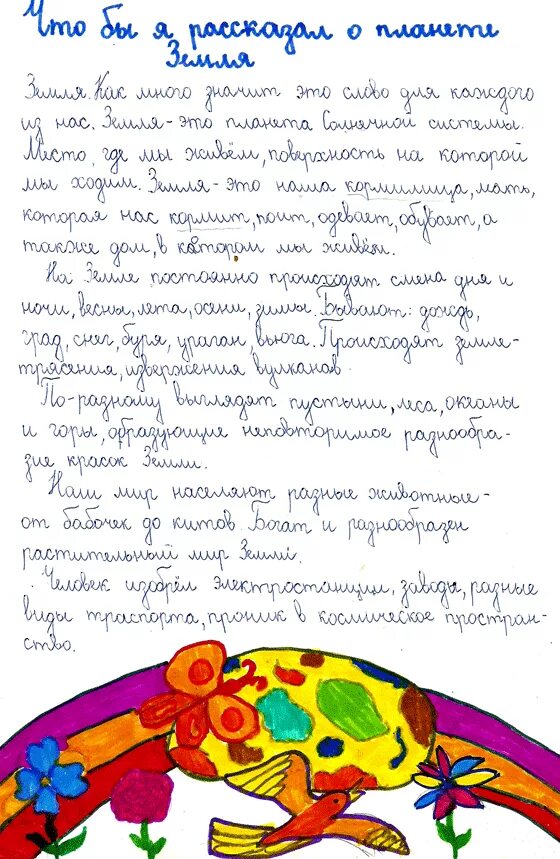 Что бы я рассказал о планете
Земля
Земля. Как много значит это слово для каждого
из нас. Земля - это планета Солнечной системы.
Место, где мы живём, поверхность на которой
мы ходим. Земля - это наша кормилица, мать,
которая нас кормит, поит, одевает, обувает, а
также дом, в котором мы живём.
На Земле постоянно происходят смена дня и
ночи, весны, лета, осени, зимы. Бывают: дождь,
град, снег, буря, ураган, вьюга. Происходят земле-
трясения, извержения вулканов.
По-разному выглядят пустыни, леса, океаны
и горы, образующие неповторимое разнообра-
зие красок Земли.
Наш мир населяют разные животные -
от бабочек до китов. Богат и разнообразен
растительный мир Земли.
Человек изобрёл электростанции, заводы, разные
виды траспорта, проник в космическое простран-
ство.